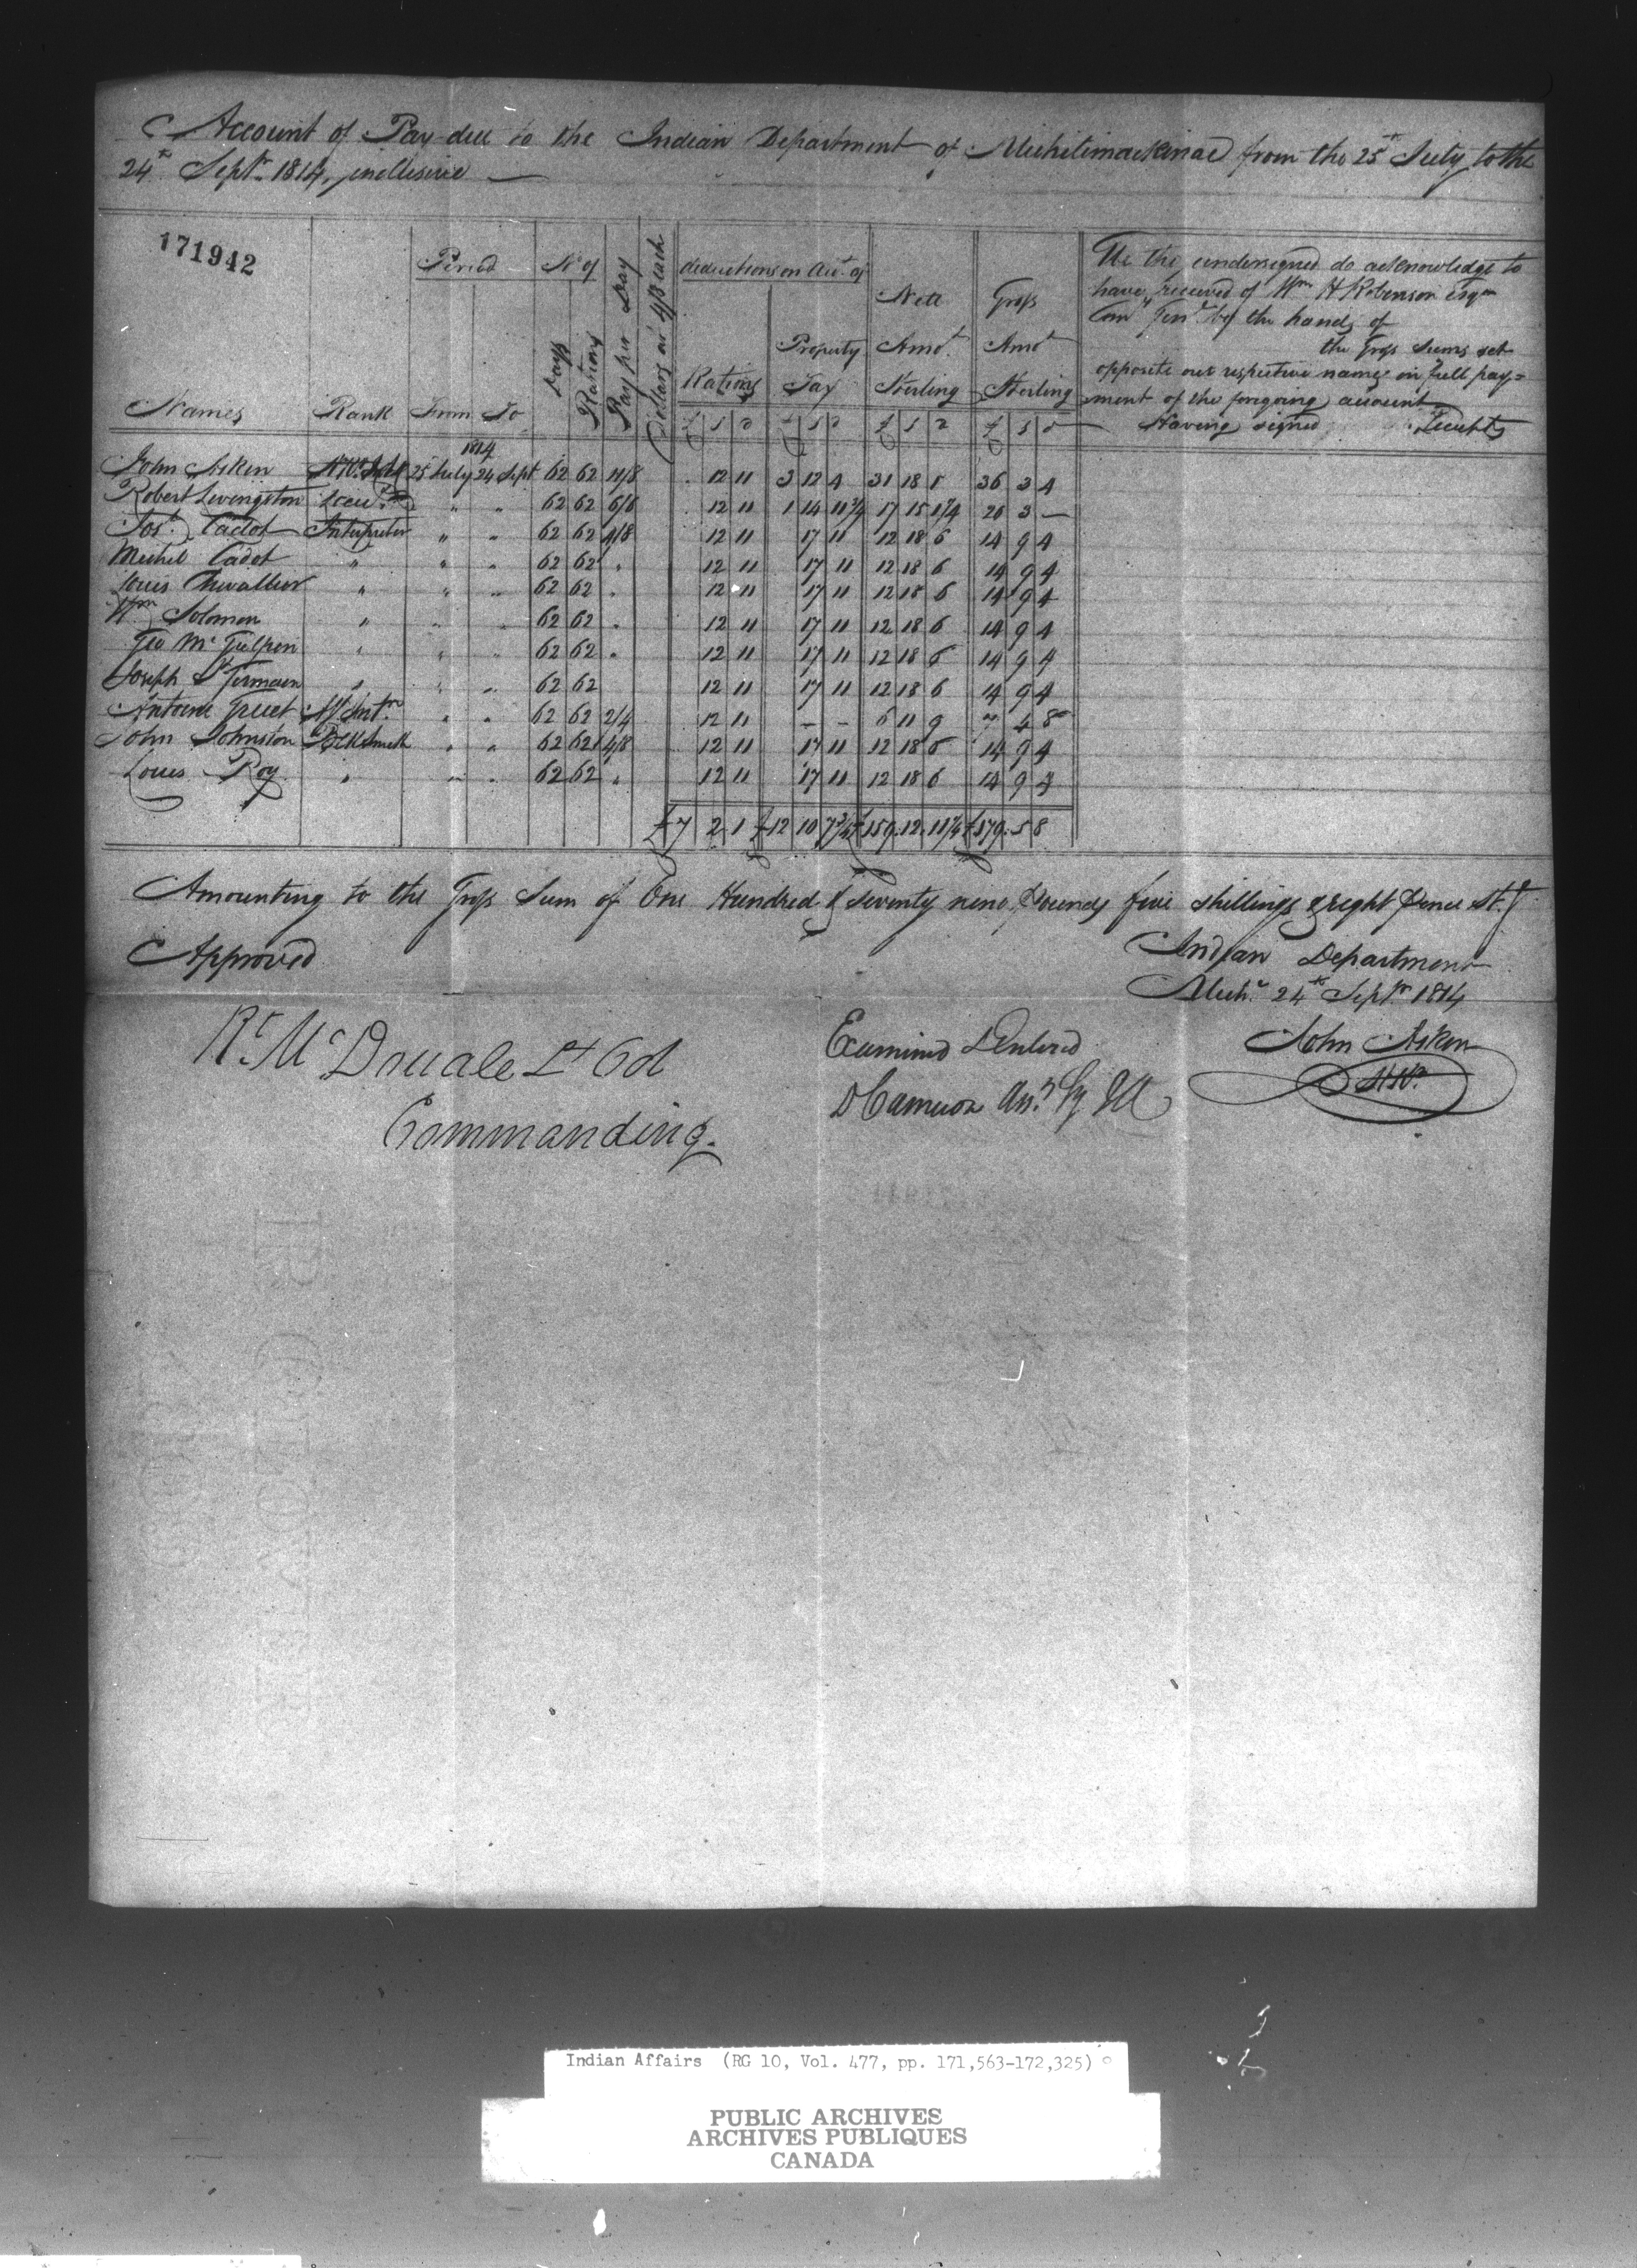 Account of Pay due to the Indian Department of Michilimackinac from the 25th July to the
24th Septr 1814, inclusive —
171942
Names Rank Period From To No of Days Rations Pay per Day Dollars at 4/8 each deductions on Acct of Rations £ s d Property Tax £ s d Nett Amot Sterling £ s d Gross Amot Sterling £ s d
We the undersigned do acknowledge to
have received of Wm H Robinson Esqr
Com Genl by the hands of
the Gross sums set
opposite our respective names in full pay=
ment of the foregoing account
Having signed Receipts
1814
John Askin 25 July 24 Sept 62 62 11/8 . 12 11 3 12 4 31 18 1 36 3 4
Robert Livingston 62 62 6/6 . 12 11 1 14 11 3/4 17 15 1 1/4 20 3 —
Jos. Cadot Interpreter " " 62 62 4/8 12 11 17 11 12 18 6 14 9 4
Michel Cadot " " " 62 62 " 12 11 17 11 12 18 6 14 9 4
Louis Chevallier " " " 62 62 " 12 11 17 11 12 18 6 14 9 4
Wm Solomon " " " 62 62 " 12 11 17 11 12 18 6 14 9 4
Geo Mc Gulpen " " " 62 62 " 12 11 17 11 12 18 6 14 9 4
Joseph St Germain " " " 62 62 12 11 17 11 12 18 6 14 9 4
Antoine Int. " " 62 62 2/4 12 11 – – 6 11 9 7 4 8
John Johnston BlkSmith " " 62 62 4/8 12 11 17 11 12 18 6 14 9 4
Louis Roy " " " 62 62 " 12 11 17 11 12 18 6 14 9 4
£ 7 2 1 £ 12 10 7 3/4 £ 159. 12. 11 1/4 £ 179. 5 8
Amounting to the Gross Sum of One Hundred & Seventy nine Pounds five shillings & eight Pence St.g
Approved
Indian Department
Mich. 24th Septr 1814
Rt. McDouall Lt Col
Commanding.
Examined & Entered
D Cameron
John Askin
Indian Affairs (RG 10, Vol. 477, pp. 171,563-172,325)
PUBLIC ARCHIVES
ARCHIVES PUBLIQUES
CANADA